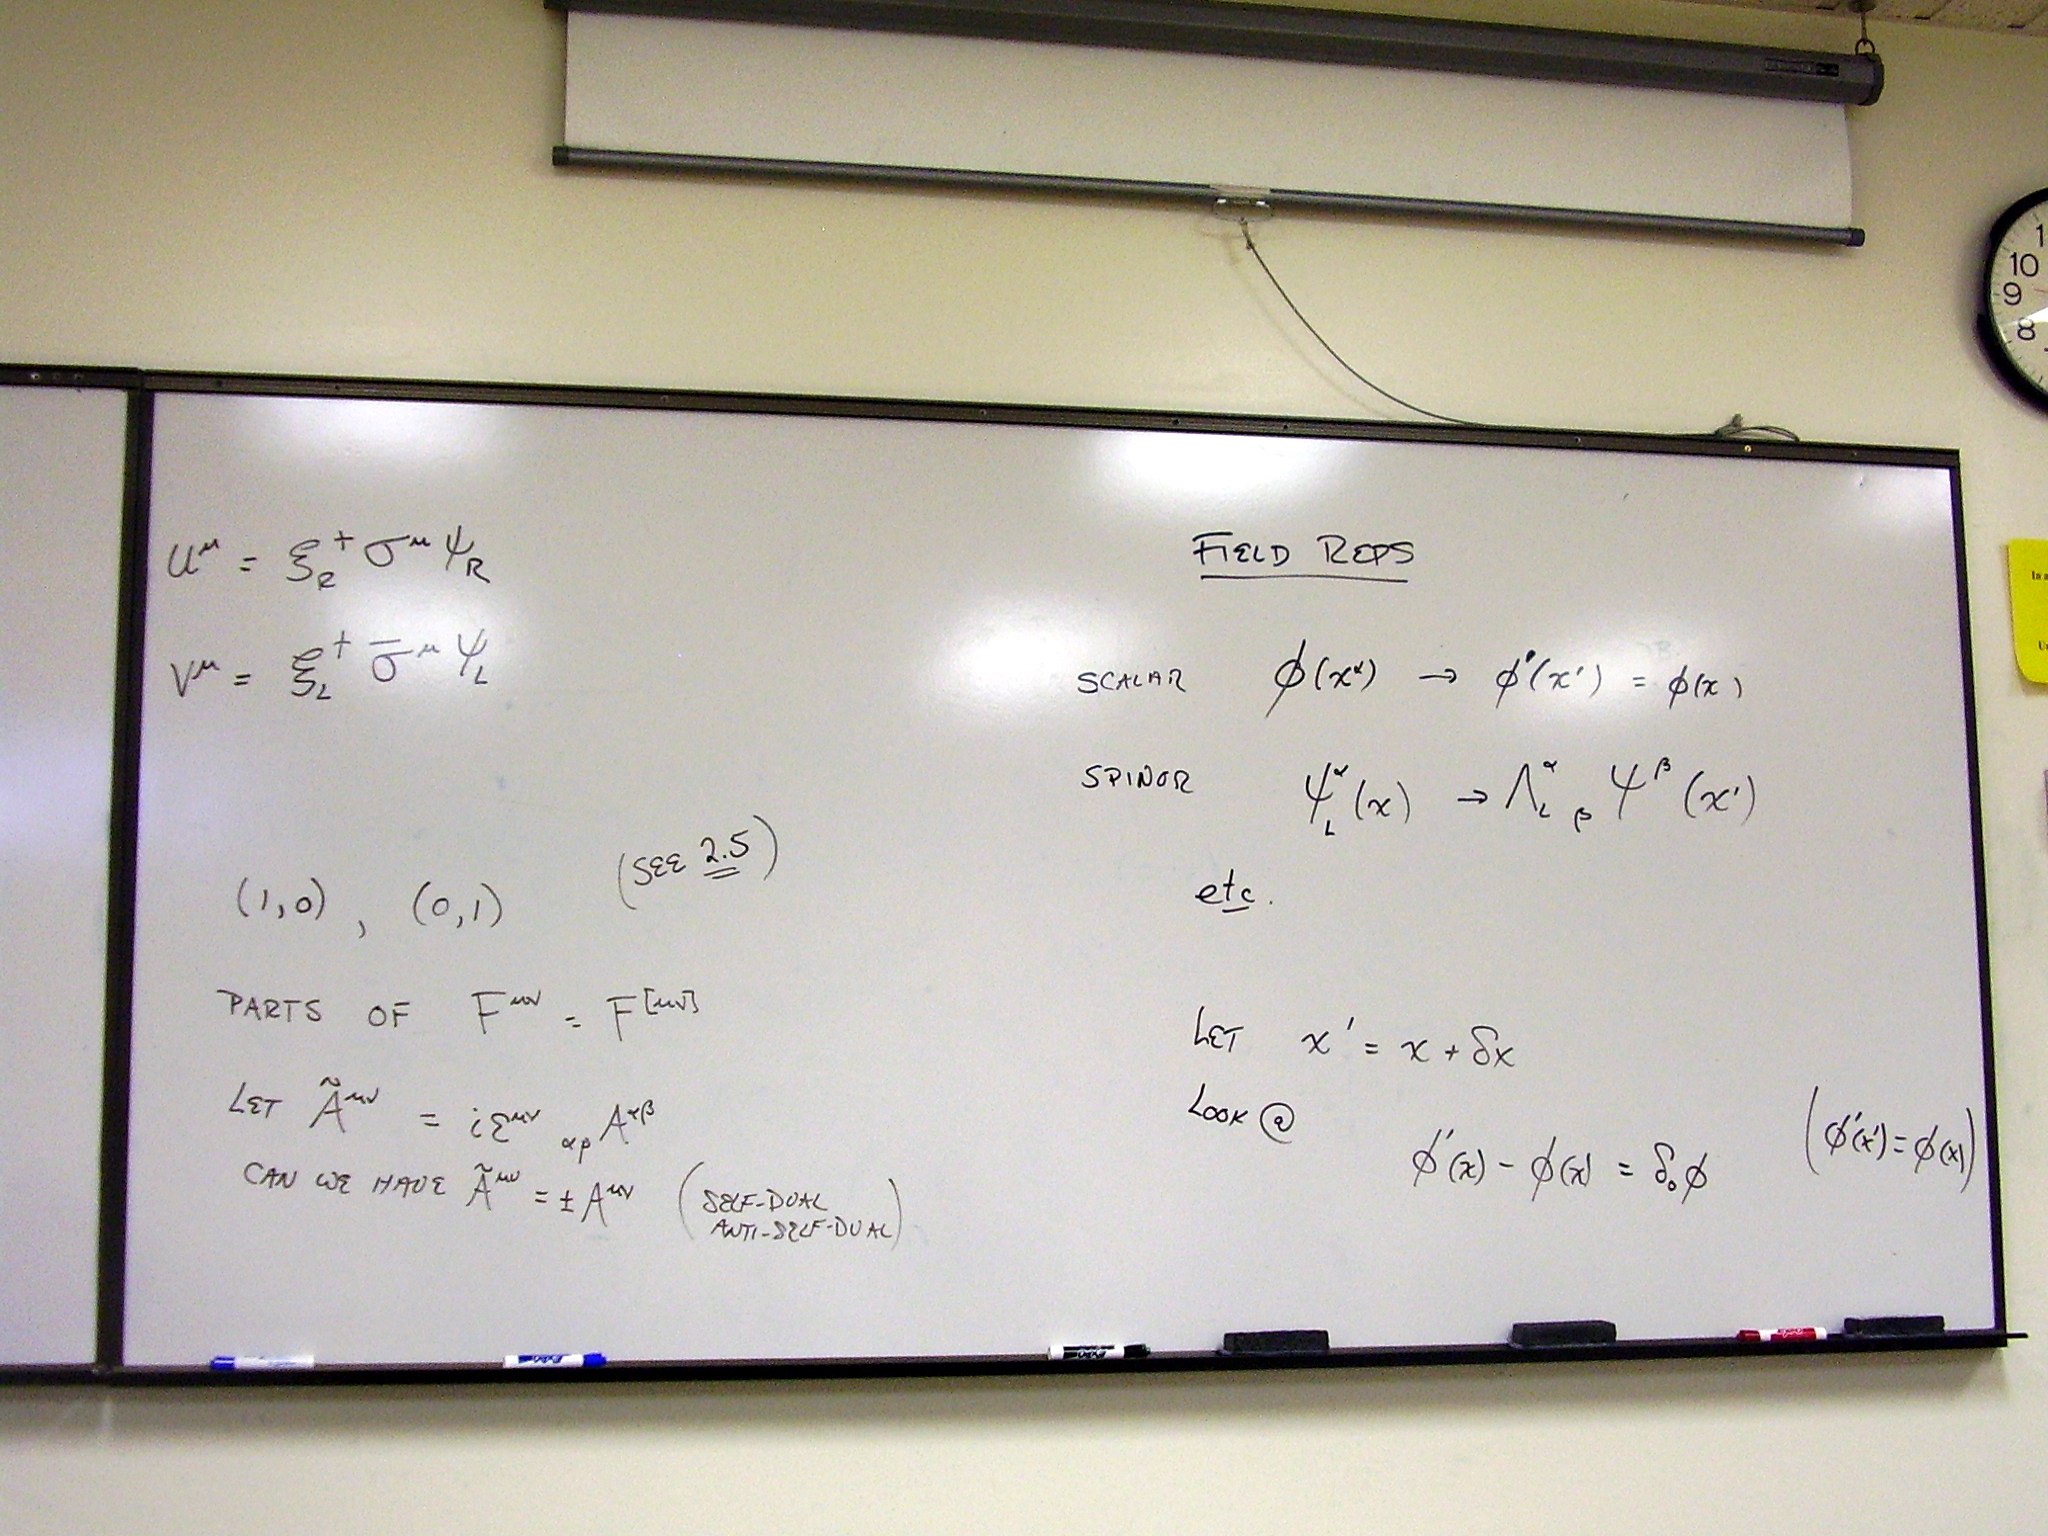 U^μ = ξ_R^† σ^μ ψ_R
V^μ = ξ_L^† σ̄^μ ψ_L
(1,0) , (0,1) (SEE 2.5)
PARTS OF F^μν = F^[μν]
LET Ã^μν = iε^μν_αβ A^αβ
CAN WE HAVE Ã^μν = ± A^μν (SELF-DUAL
ANTI-SELF-DUAL)
FIELD REPS
SCALAR φ(x^α) → φ'(x') = φ(x)
SPINOR ψ_L^α(x) → Λ_L^α_β ψ^β(x')
etc.
LET x' = x + δx
LOOK @
φ'(x) - φ(x) = δ₀φ (φ'(x') = φ(x))
1
10
9
8
In a
U